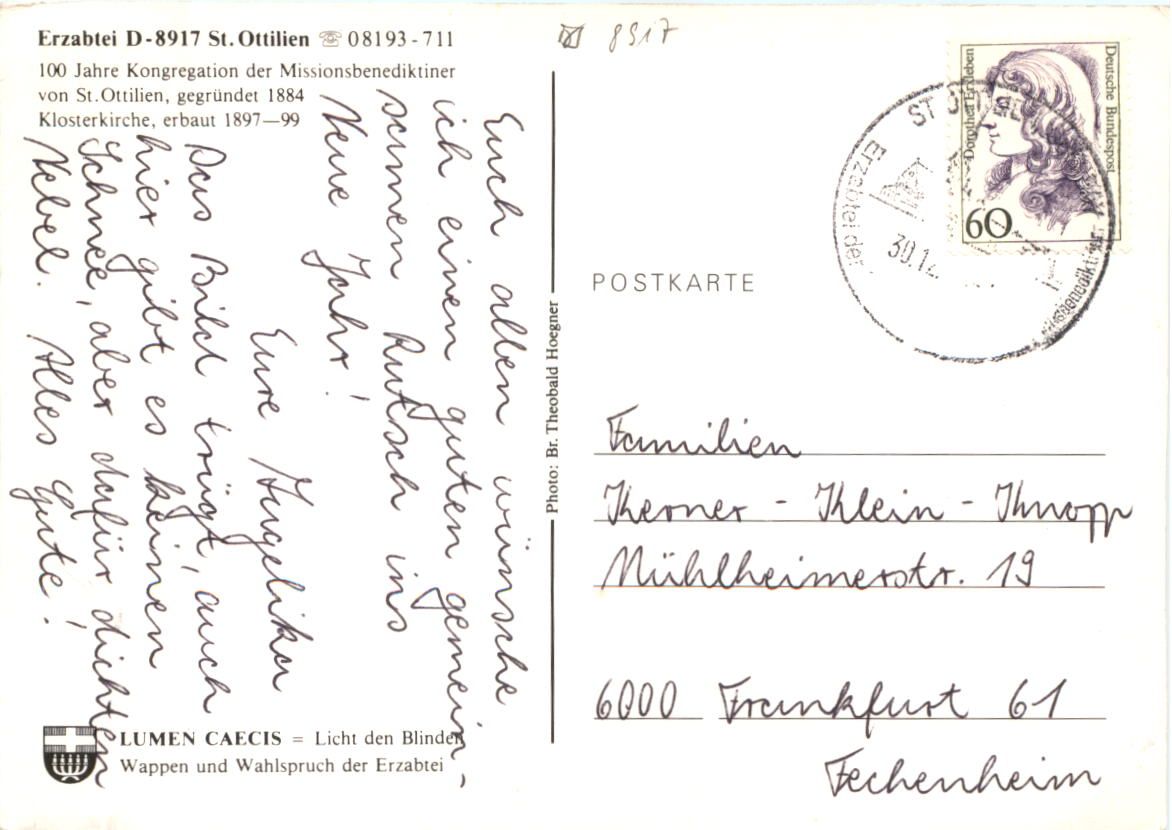 Erzabtei D-8917 St. Ottilien ☏ 08193-711
100 Jahre Kongregation der Missionsbenediktiner
von St. Ottilien, gegründet 1884
Klosterkirche, erbaut 1897—99
Euch allen wünsche
ich einen guten gemein,
samen Rutsch ins
Neue Jahr!
Eure Angelika
Das Bild trügt, auch
hier gibt es keinen
Schnee, aber dafür dichten
Nebel. Alles Gute!
LUMEN CAECIS = Licht den Blinden
Wappen und Wahlspruch der Erzabtei
Photo: Br. Theobald Hoegner
8917
Dorothea Erxleben
Deutsche Bundespost
60
ST
Erzabtei der
30.12.
POSTKARTE
Familien
Kerner - Klein - Knopp
Mühlheimerstr. 19
6000 Frankfurt 61
Fechenheim